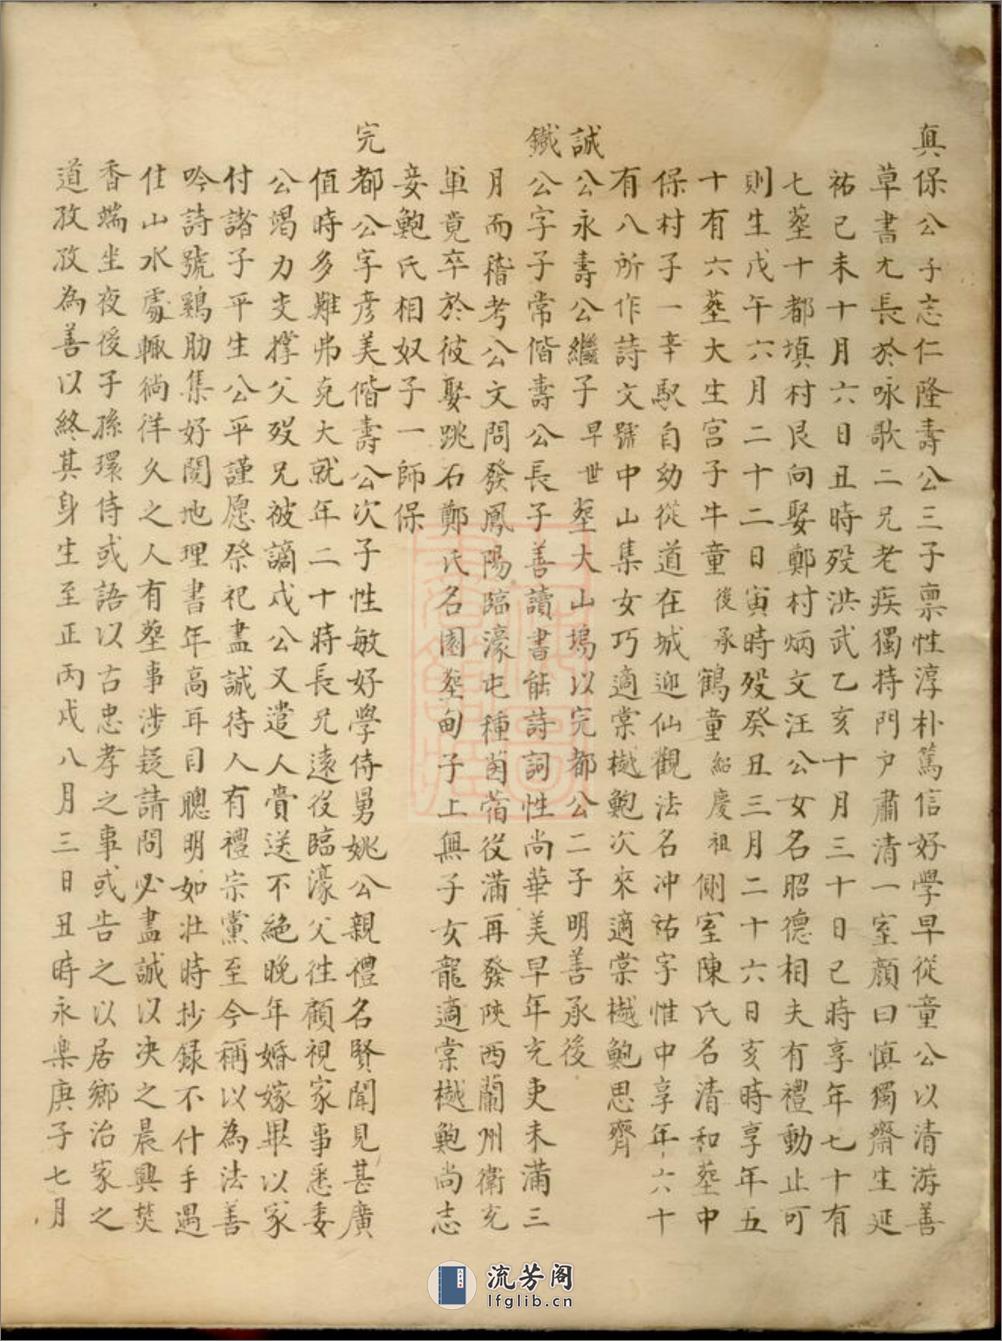 真保公子志仁隆壽公三子禀性淳朴篤信好學早從童公以清游善
草書尤長於咏歌二兄老疾獨持門户肅清一室顏曰慎獨齋生延
祐己未十月六日丑時殁洪武乙亥十月三十日巳時享年七十有
七塟十都填村艮向娶鄭村炳文汪公女名昭德相夫有禮動止可
則生戊午六月二十二日寅時殁癸丑三月二十六日亥時享年五
十有六塟大生宫子牛童後承鶴童紹慶祖側室陳氏名清和塟中
保村子一辛馭自幼從道在城迎仙觀法名冲祐字惟中享年六十
有八所作詩文號中山集女巧適棠樾鮑次來適棠樾鮑思齊
誠公永壽公繼子早世塟大山塢以完都公二子明善承後
鐵公字子常偕壽公長子善讀書能詩詞性尚華美早年充吏未滿三
月而稽考公文問發鳳陽臨濠屯種茵蓿役滿再發陜西蘭州衛充
軍竟卒於彼娶跳石鄭氏名園塟甸子上無子女龍適棠樾鮑尚志
妾鮑氏相奴子一師保
完都公字彦美偕壽公次子性敏好學侍舅姚公親禮名賢聞見甚廣
值時多難弗克大就年二十時長兄遠役臨濠父往顧視家事悉委
公竭力支撑父殁兄被謫戍公又遣人賫送不絶晚年婚嫁畢以家
付諸子平生公平謹愿祭祀盡誠待人有禮宗黨至今稱以為法善
吟詩號鷄肋集好閱地理書年高耳目聰明如壯時抄録不什手遇
佳山水處輒徜徉久之人有塟事涉疑請問必盡誠以决之晨興焚
香端坐夜後子孫環侍或語以古忠孝之事或告之以居鄉治家之
道孜孜為善以終其身生至正丙戌八月三日丑時永樂庚子七月
流芳阁
lfglib.cn